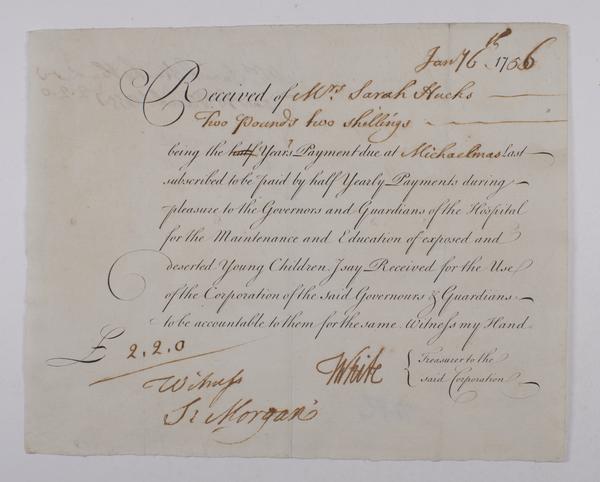 Jany 6th 1756
Received of Mrs Sarah Hucks
Two pounds two shillings
being the half Year's Payment due at Michaelmas Last
subscribed to be paid by half Yearly Payments during
pleasure to the Governors and Guardians of the Hospital
for the Maintenance and Education of exposed and
deserted Young Children. I say Received for the Use
of the Corporation of the said Governours & Guardians
to be accountable to them for the same. Witness my Hand
£ 2.2.0
White
Treasurer to the
said Corporation
Witness
Morgan